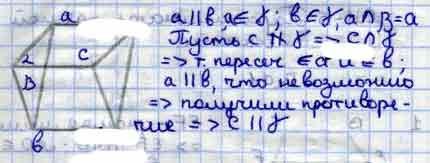 a
a||b, a∈γ; b∈γ, a∩β=a
Пусть c ∦ γ => c∩γ
c
=> т. пересеч ∈ a и ∈ b;
2
B
a||b, что невозможно
=> получили противоре-
b
чие => c || γ